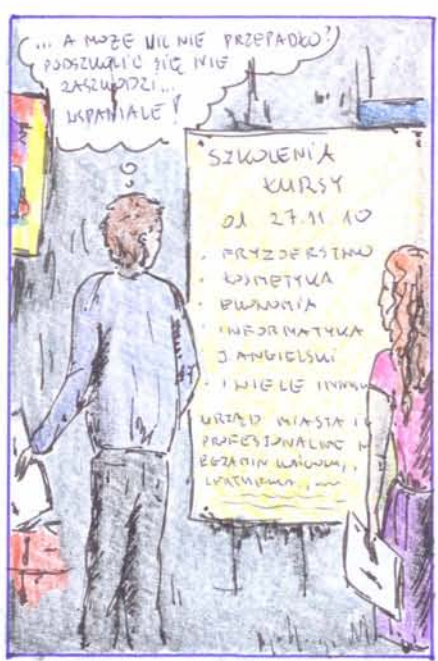 ... A MOŻE NIC NIE PRZEPADŁO?
PODSZKOLIĆ SIĘ NIE
ZASZKODZI...
WSPANIALE!
SZKOLENIA
KURSY
od 27.11.10
• FRYZJERSTWO
• KOSMETYKA
• EKONOMIA
• INFORMATYKA
J. ANGIELSKI
• I WIELE INNYCH
URZĄD MIASTA I
PROFESJONALNE
EGZAMIN